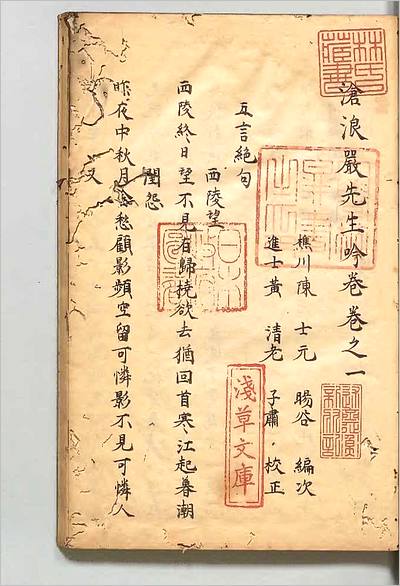 林氏藏書
滄浪嚴先生吟卷卷之一
樵川陳 士元 暘谷 編次
進士黃 清老 子肅 校正
淺草文庫
五言絶句
西陵望
西陵終日望不見有歸橈欲去猶回首寒江起暮潮
閨怨
昨夜中秋月愁顧影頻空留可憐影不見可憐人
又